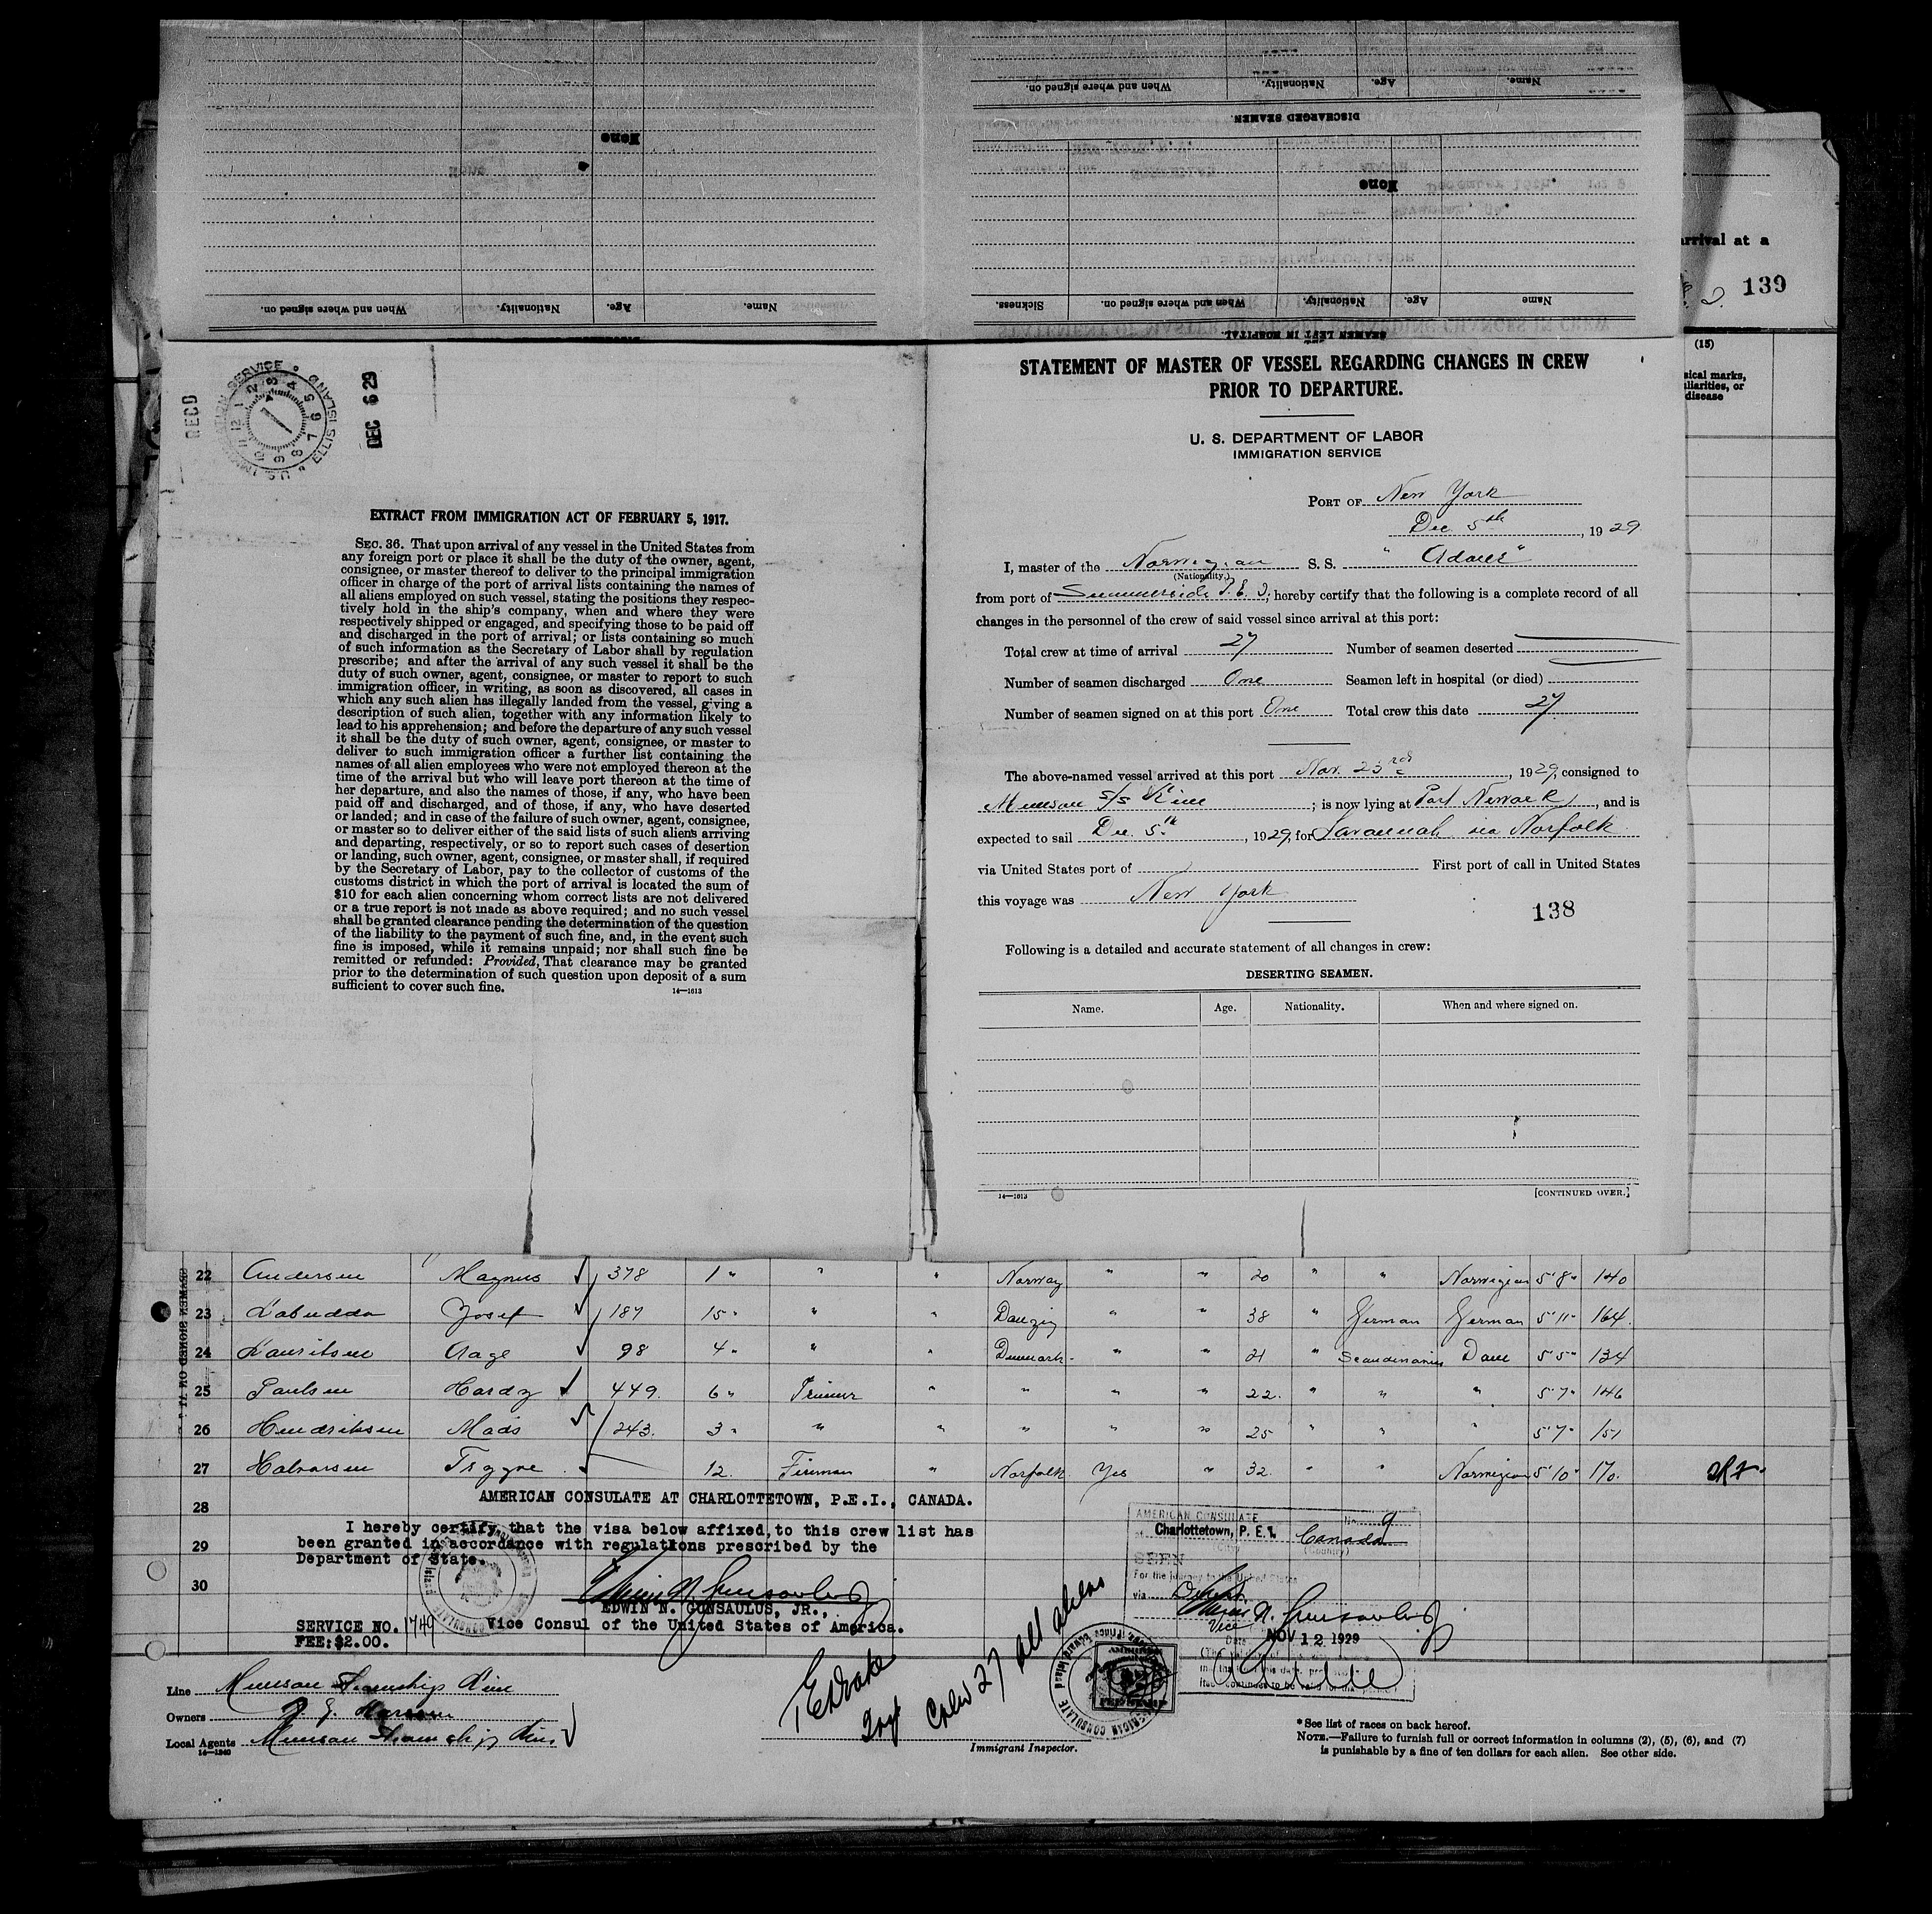 When and where signed on.
Nationality.
Age.
Name.
DISCHARGED SEAMEN.
None
None
When and where signed on.
Nationality.
Age.
Name.
Sickness.
When and where signed on.
Nationality.
Age.
Name
SEAMEN LEFT IN HOSPITAL.
arrival at a
139
(15)
sical marks,
liarities, or
disease
RECD
U.S. IMMIGRATION SERVICE ELLIS ISLAND
DEC 6 29
EXTRACT FROM IMMIGRATION ACT OF FEBRUARY 5, 1917.
SEC. 36. That upon arrival of any vessel in the United States from
any foreign port or place it shall be the duty of the owner, agent,
consignee, or master thereof to deliver to the principal immigration
officer in charge of the port of arrival lists containing the names of
all aliens employed on such vessel, stating the positions they respec-
tively hold in the ship's company, when and where they were
respectively shipped or engaged, and specifying those to be paid off
and discharged in the port of arrival; or lists containing so much
of such information as the Secretary of Labor shall by regulation
prescribe; and after the arrival of any such vessel it shall be the
duty of such owner, agent, consignee, or master to report to such
immigration officer, in writing, as soon as discovered, all cases in
which any such alien has illegally landed from the vessel, giving a
description of such alien, together with any information likely to
lead to his apprehension; and before the departure of any such vessel
it shall be the duty of such owner, agent, consignee, or master to
deliver to such immigration officer a further list containing the
names of all alien employees who were not employed thereon at the
time of the arrival but who will leave port thereon at the time of
her departure, and also the names of those, if any, who have been
paid off and discharged, and of those, if any, who have deserted
or landed; and in case of the failure of such owner, agent, consignee,
or master so to deliver either of the said lists of such aliens arriving
and departing, respectively, or so to report such cases of desertion
or landing, such owner, agent, consignee, or master shall, if required
by the Secretary of Labor, pay to the collector of customs of the
customs district in which the port of arrival is located the sum of
$10 for each alien concerning whom correct lists are not delivered
or a true report is not made as above required; and no such vessel
shall be granted clearance pending the determination of the question
of the liability to the payment of such fine, and, in the event such
fine is imposed, while it remains unpaid; nor shall such fine be
remitted or refunded: Provided, That clearance may be granted
prior to the determination of such question upon deposit of a sum
sufficient to cover such fine.
14—1613
STATEMENT OF MASTER OF VESSEL REGARDING CHANGES IN CREW
PRIOR TO DEPARTURE.
U. S. DEPARTMENT OF LABOR
IMMIGRATION SERVICE
PORT OF New York
Dec 5th, 1929
I, master of the Norwegian S. S.
(Nationality.)
from port of Summerside P. E. I; hereby certify that the following is a complete record of all
changes in the personnel of the crew of said vessel since arrival at this port:
Total crew at time of arrival 27 Number of seamen deserted
Number of seamen discharged One Seamen left in hospital (or died)
Number of seamen signed on at this port One Total crew this date 27
The above-named vessel arrived at this port Nov. 23rd, 1929, consigned to
Munson S/S Line; is now lying at Port Newark, and is
expected to sail Dec. 5th, 1929, for Savannah via Norfolk
via United States port of First port of call in United States
this voyage was New York
138
Following is a detailed and accurate statement of all changes in crew:
DESERTING SEAMEN.
Name. Age. Nationality. When and where signed on.
14—1613 [CONTINUED OVER.]
22 Andersen Magnus 378 1 " " " Norway " " 20 " " Norwegian 5'8" 140
23 Labudda Josef 187 15 " " " Danzig " " 38 " German German 5'11" 164.
24 Lauritsen Aage 98 4 " " " Denmark " " 21 " Scandinavian Dane 5'5" 134
25 Paulsen Hardy 449. 6 " Trimmer " " " " 22. " " " 5'7" 146
26 Hendriksen Mads 243. 3 " " " " " " 25 " " " 5'7" 151
27 Halvorsen Trygve 12. Fireman " Norfolk Yes " 32. " " Norwegian 5'10" 170.
28 AMERICAN CONSULATE AT CHARLOTTETOWN, P.E.I., CANADA.
I hereby certify that the visa below affixed, to this crew list has
29 been granted in accordance with regulations prescribed by the
Department of State.
30
EDWIN N. GUNSAULUS, JR.,
SERVICE NO. 1749 Vice Consul of the United States of America.
FEE: $2.00.
AMERICAN CONSULATE No. 9
at Charlottetown, P. E. I. Canada
(City) (Country)
SEEN
For the journey to the United States
via
Edwin N. Gunsaulus Jr
Vice
Date NOV 12 1929
Line Munson Steamship Line
Owners
Local Agents Munson Steamship Line
14—1240
Crew 27 all aliens
Immigrant Inspector.
* See list of races on back hereof.
NOTE.—Failure to furnish full or correct information in columns (2), (5), (6), and (7)
is punishable by a fine of ten dollars for each alien. See other side.